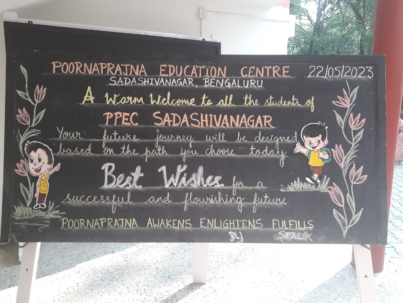 POORNAPRAJNA EDUCATION CENTRE 22/05/2023
SADASHIVANAGAR, BENGALURU
A Warm Welcome to all the students of
PPEC SADASHIVANAGAR
Your future journey will be designed
based on the path you choose today
Best Wishes for a
successful and flourishing future
POORNAPRAJNA AWAKENS ENLIGHTENS FULFILLS
By